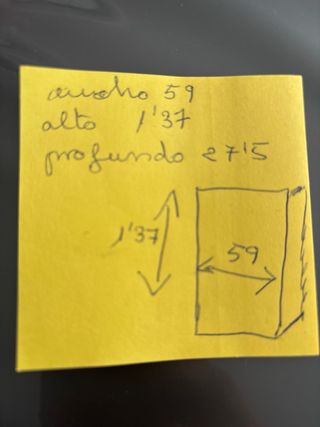 ancho 59
alto 1'37
profundo 27'5
1'37
59